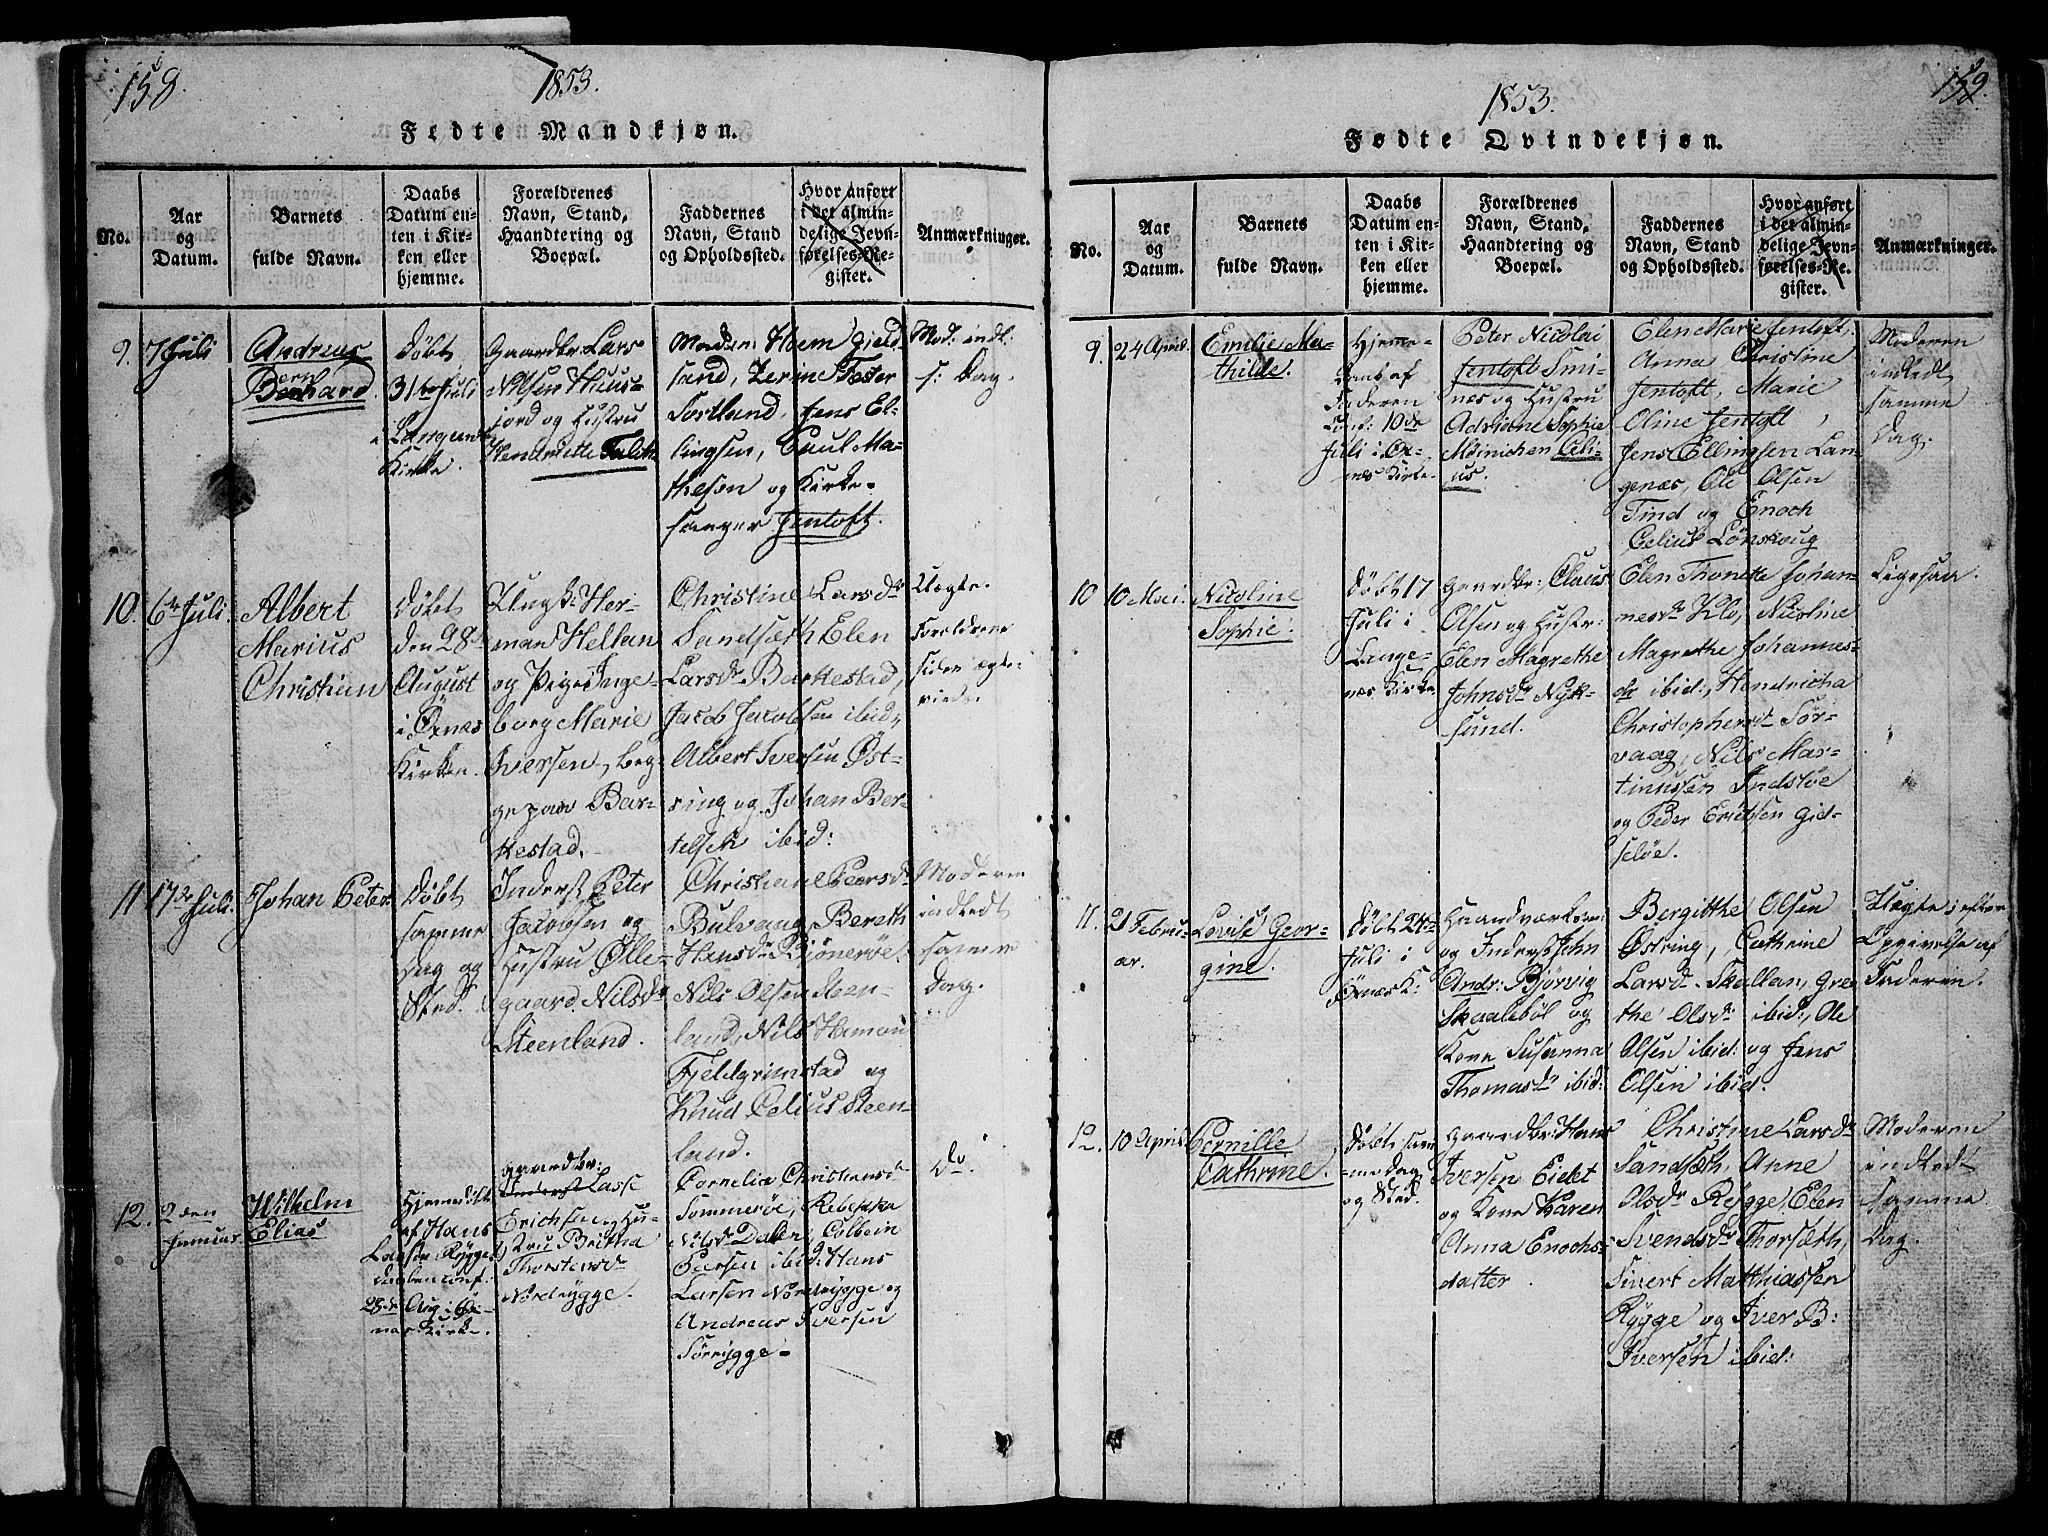 158.
1853.
Fødte Mandkjøn.
No.
Aar
og
Datum.
Barnets
fulde Navn.
Daabs
Datum en-
ten i Kir-
ken eller
hjemme.
Forældrenes
Navn, Stand,
Haandtering og
Boepæl.
Faddernes
Navn, Stand
og Opholdssted.
Hvor anført
i det almin-
delige Jevn-
førelses-Re-
gister.
Anmærkninger.
9.
7 Juli
Andreas
Bernhard
Døbt
31te Juli
i Langenæs
Kirke.
Gaardbr. Lars
Nilsen Huus-
jord og Hustru
Henriette
Madam Hoem Gjeld-
sand,
Sortland, Jens El-
lingsen, Poul Ma-
thesen og Kirke-
sanger Jentoft.
Mod: indl.
s: Dag.
10.
6te Juli.
Albert
Marius
Christian
Døbt
den 28de
August
i Øxnes
Kirken.
Ungk. Her-
man Hellan
og Pige Inge-
borg Marie
Iversen, beg-
ge paa Bar-
kestad.
Christine Larsdr
Sandsæth, Elen
Larsdr Barkestad,
Jacob Jacobsen ibid,
Albert Iversen Øst-
ring og Johan Ber-
telsen ibid:
Uægte.
Foreldrene
siden ægte-
viede.
11.
17de Juli.
Johan Peter
Døbt
samme
Dag og
Sted.
Inderst Peter
Jacobsen og
Hustru Olle-
gaard Nilsdr
Steenland.
Christiane Peersdr
Bulvang, Bereth
Hansdr Bjønerøe.
Nils Olsen Steen-
land, Nils Hansen
Fjeldgrimstad og
Knud Celius Steen-
land.
Moderen
indledt
samme
Dag.
12.
2den
Junius
Wilhelm
Elias
Hjemmedøbt
af Hans
Larsen Rygge.
Daaben conf.
28de Aug i Øx-
næs Kirke.
Gaardbr:
Inderst Lasse
Erichsen, Hu-
stru Britha
Thorstensdr
Nordrygge.
Cornelia Christiansdr
Sommerøe, Rebekka
Nilsdr Dalen, Colbein
Peersen ibid: Hans
Larsen Nordrygge og
Andreas Iversen
Sørrygge.
Do.
159.
1853.
Fødte Qvindekjøn.
No.
Aar
og
Datum.
Barnets
fulde Navn.
Daabs
Datum en-
ten i Kir-
ken eller
hjemme.
Forældrenes
Navn, Stand,
Haandtering og
Boepæl.
Faddernes
Navn, Stand
og Opholdssted.
Hvor anført
i det almin-
delige Jevn-
førelses-Re-
gister.
Anmærkninger.
9.
24 April.
Emilie Ma-
thilde.
Hjemme-
Daab af
Faderen
Conf: 10de
Juli i Øx-
nes Kirke.
Peter Nicolai
Jentoft Smi-
næs og Hustru
Adriane Sophie
Meinichen Celi-
us.
Elen Marie Jentoft,
Anna Christine
Jentoft, Marie
Oline Jentoft,
Jens Ellingsen Lan-
genæs, Ole Olsen
Tind og Enoch
Celius Lønskoug
Moderen
indledt
samme
Dag.
10
10 Mai.
Nicoline
Sophie.
Døbt 17
Juli i
Lange-
næs Kirke
Gaardbr: Claus
Olsen og Hustr:
Elen Magrethe
Johnsdr Nyk-
sund.
Elen Thonette Johan-
nesdr Klo, Nicoline
Magrethe Johannes-
dr ibid; Hendricha
Christophersdr Sør-
vaag, Nils Mar-
tinussen Indsløe
og Peder Erichsen Gid-
sløe.
Ligesaa.
11.
21 Febru-
ar.
Lovise Geor-
gine.
Døbt 24de
Juli i
Øxnes K:
Haandværksm:
og Inderst John
Andr: Bjørvig
Skaalebøl og
Kone Susanna
Thomasdr ibid:
Bergitthe Olsen
Østring, Cathrine
Larsdr Skallan, Gre-
the Olsdr ibid:, Ole
Olsen ibid: og Jens
Olsen ibid.
Uægte; efter
Opgivelse af
Faderen.
12.
10 April.
Pernille
Cathrine.
Døbt sam-
me Dag
og Sted.
Gaardbr: Hans
Iversen Eidet
og Kone Karen
Anna Enochs-
datter.
Christine Larsdr
Sandsæth, Anne
Olsdr Rygge, Elen
Svendsdr Thorsæth,
Sivert Matthiassen
Rygge og Iver B:
Iversen ibid:
Moderen
indledt
samme
Dag.